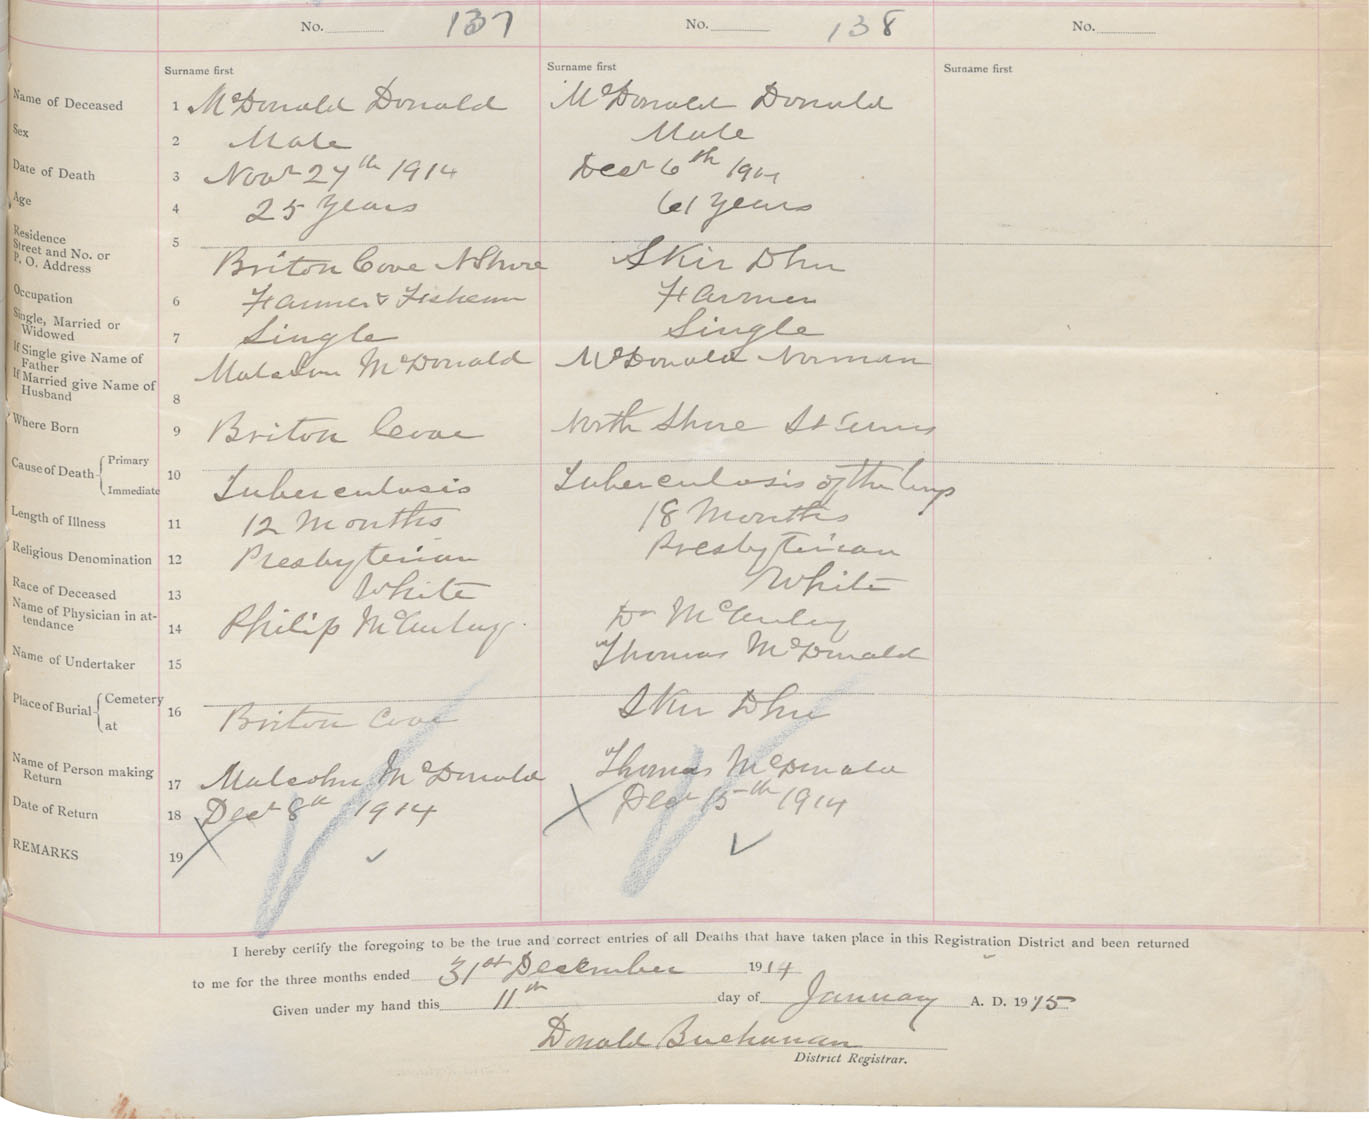 No. 137 No. 138 No.
Surname first Surname first Surname first
Name of Deceased 1 McDonald Donald McDonald Donald
Sex 2 Male Male
Date of Death 3 Novr 27th 1914 Decr 6th 1914
Age 4 25 years 61 years
Residence
Street and No. or
P. O. Address 5 Briton Cove N Shore Skir Dhu
Occupation 6 Farmer & Fisherm Farmer
Single, Married or
Widowed 7 Single Single
If Single give Name of
Father
If Married give Name of
Husband 8 Malcolm McDonald McDonald Norman
Where Born 9 Briton Cove North Shore St Anns
Cause of Death { Primary
Immediate 10 Tuberculosis Tuberculosis of the lungs
Length of Illness 11 12 Months 18 Months
Religious Denomination 12 Presbyterian Presbyterian
Race of Deceased 13 White White
Name of Physician in at-
tendance 14 Philip McAulay Dr McAulay
Name of Undertaker 15 Thomas McDonald
Place of Burial { Cemetery
at 16 Briton Cove Skir Dhu
Name of Person making
Return 17 Malcolm McDonald Thomas McDonald
Date of Return 18 Decr 8th 1914 Decr 15th 1914
REMARKS 19
I hereby certify the foregoing to be the true and correct entries of all Deaths that have taken place in this Registration District and been returned
to me for the three months ended 31st December 1914
Given under my hand this 11th day of January A. D. 1915
Donald Buchanan
District Registrar.